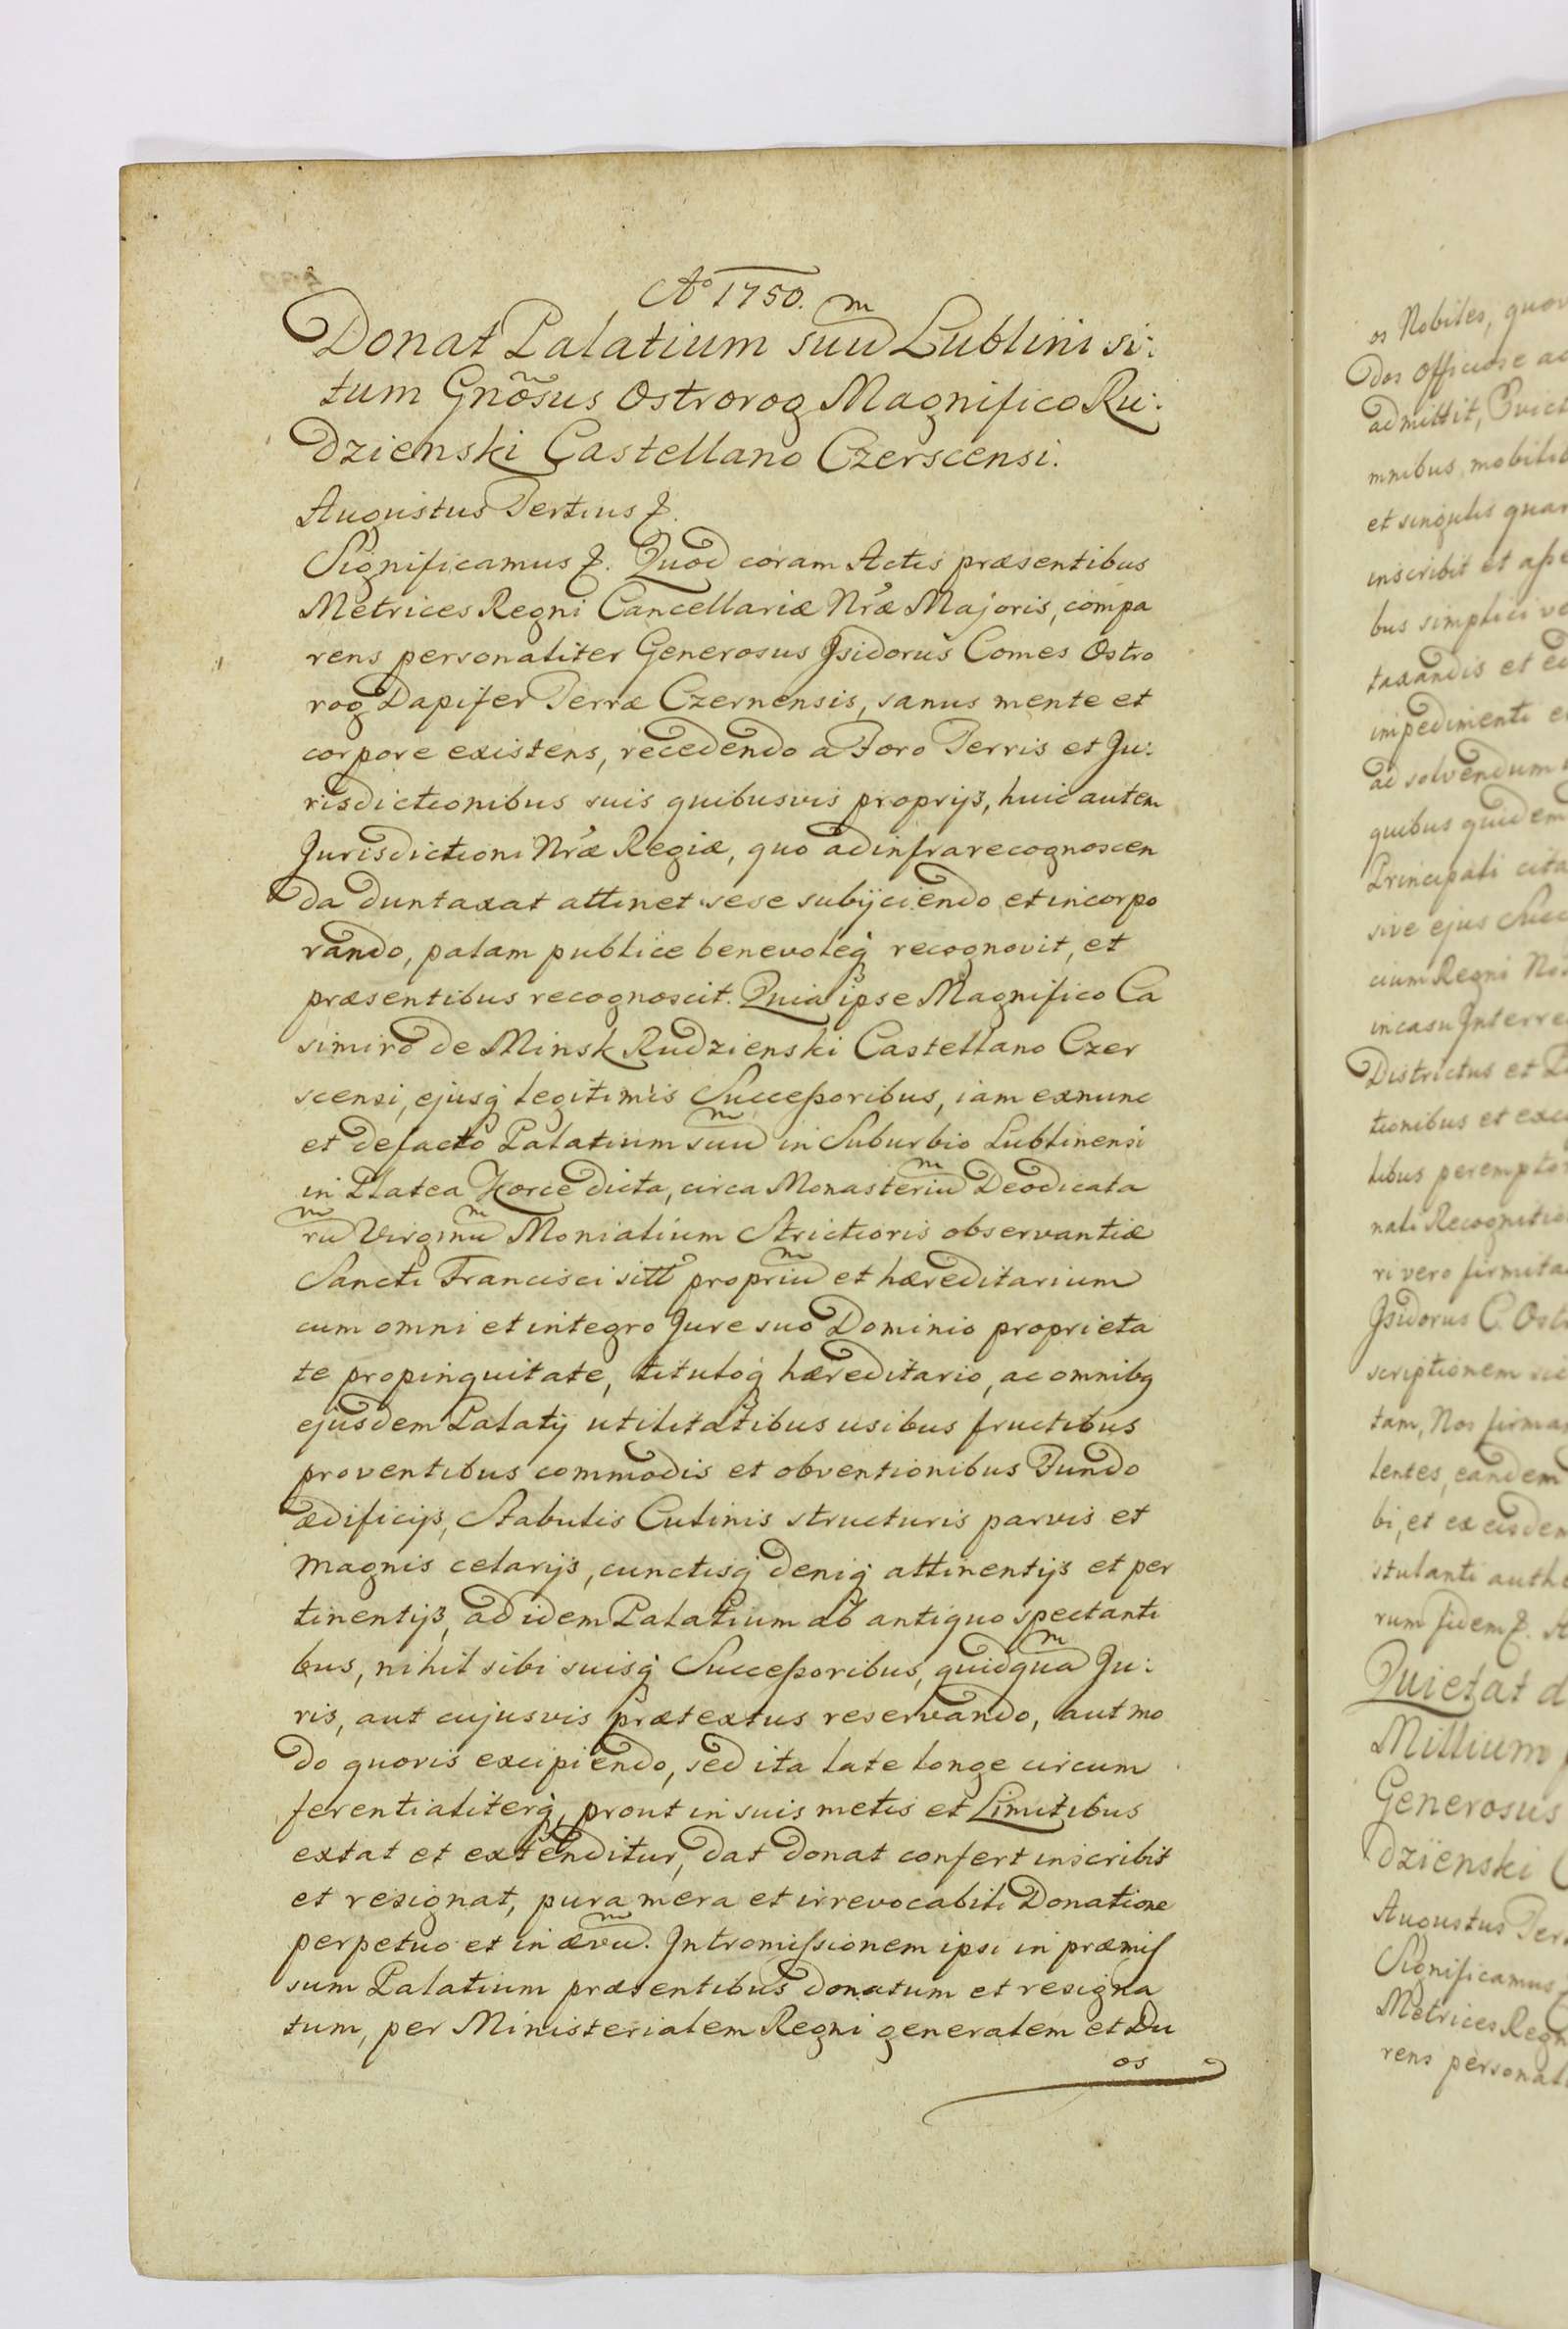 Aº 1750.
Donat Palatium suũ Lublini si:
tum Gnõsus Ostrorog Magnifico Ru:
dzienski Castellano Czerscensi.
Augustus Tertius &.
Significamus &. Quod coram Actis præsentibus
Metrices Regni Cancellariæ Nr̃æ Majoris, compa
rens personaliter Generosus Isidorus Comes Ostro
rog Dapifer Terræ Czernensis, sanus mente et
corpore existens, recedendo a Foro Terris et Ju:
risdictionibus suis quibusvis proprijs, huic autem
Jurisdictioni Nr̃æ Regiæ, quo ad infrarecognoscen
da duntaxat attinet sese subijciendo et incorpo
rando, palam publice benevoleq; recognovit, et
præsentibus recognoscit. Quia ipse Magnifico Ca
simiro de Minsk Rudzienski Castellano Czer
scensi, ejusq; legitimis Successoribus, iam exnunc
et defacto Palatium suũ in Suburbio Lublinensi
in Platea Korce dicta, circa Monasteriũ Deodicata
rũ Virginũ Monialium Strictioris observantiæ
Sancti Francisci sitt propriũ et hæreditarium
cum omni et integro Jure suo Dominio proprieta
te propinquitate, tituloq; hæreditario, ac omnibq
ejusdem Palatij utilitatibus usibus fructibus
proventibus commodis et obventionibus Fundo
ædificijs, Stabulis Culinis structuris parvis et
magnis celarijs, cunctisq; deniq; attinentijs et per
tinentijs, ad idem Palatium ab antiquo spectanti
bus, nihil sibi suisq; Successoribus, quidquã Ju:
ris, aut cujusvis prætextus reservando, aut mo
do quovis excipiendo, sed ita late longe circum
ferentialiterq; prout in suis metis et Limitibus
extat et extenditur, dat donat confert inscribit
et resignat, pura mera et irrevocabili Donatione
perpetuo et in ævũ. Intromissionem ipsi in præmis
sum Palatium præsentibus donatum et resigna
tum, per Ministerialem Regni generalem et Du
os
os Nobiles, quor
dos officiose ac
admittit, Evict
mnibus, mobilib
et singulis quar
inscribit et asse
bus simplici ve
taxandis et
impedimenti e
ad solvendum
quibus quidem
Principali cita
sive ejus Succ
cium Regni Nos
in casu Interre
Districtus et
tionibus et exc
libus perempto
nali Recognitio
ri vero firmita
Isidorus C. Ostr
scriptionem sic
tam, Nos firma
lentes, eandem
bi, et ex eisdem
stulanti auth
rum fidem &.
Quietat d
Millium
Generosus
dzienski C
Augustus Ter
Significamus
Metrices Regn
rens personal